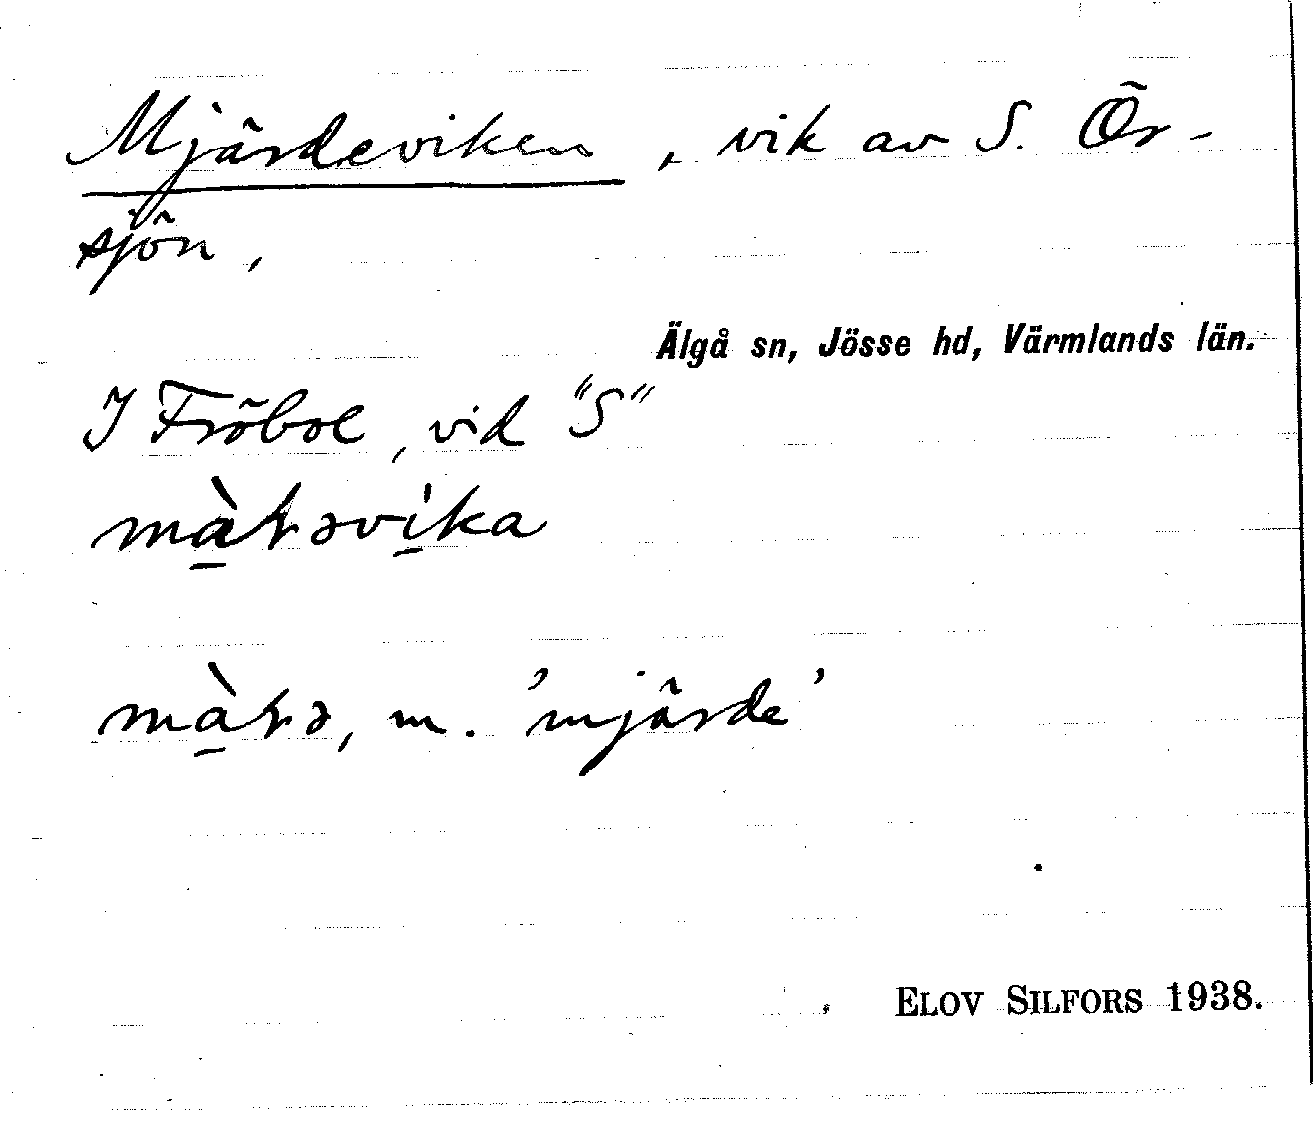 Mjärdeviken, vik av S. Ör-
sjön,
Älgå sn, Jösse hd, Värmlands län.
I Fröbol, vid "S"
mära, m. 'mjärde'
ELOV SILFORS 1938.